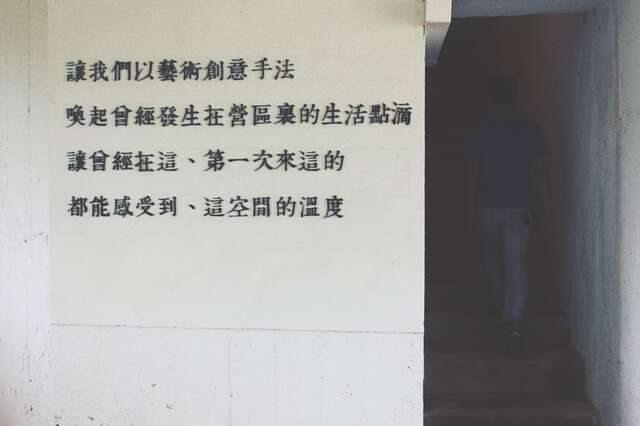 讓我們以藝術創意手法
喚起曾經發生在營區裏的生活點滴
讓曾經在這、第一次來這的
都能感受到、這空間的溫度